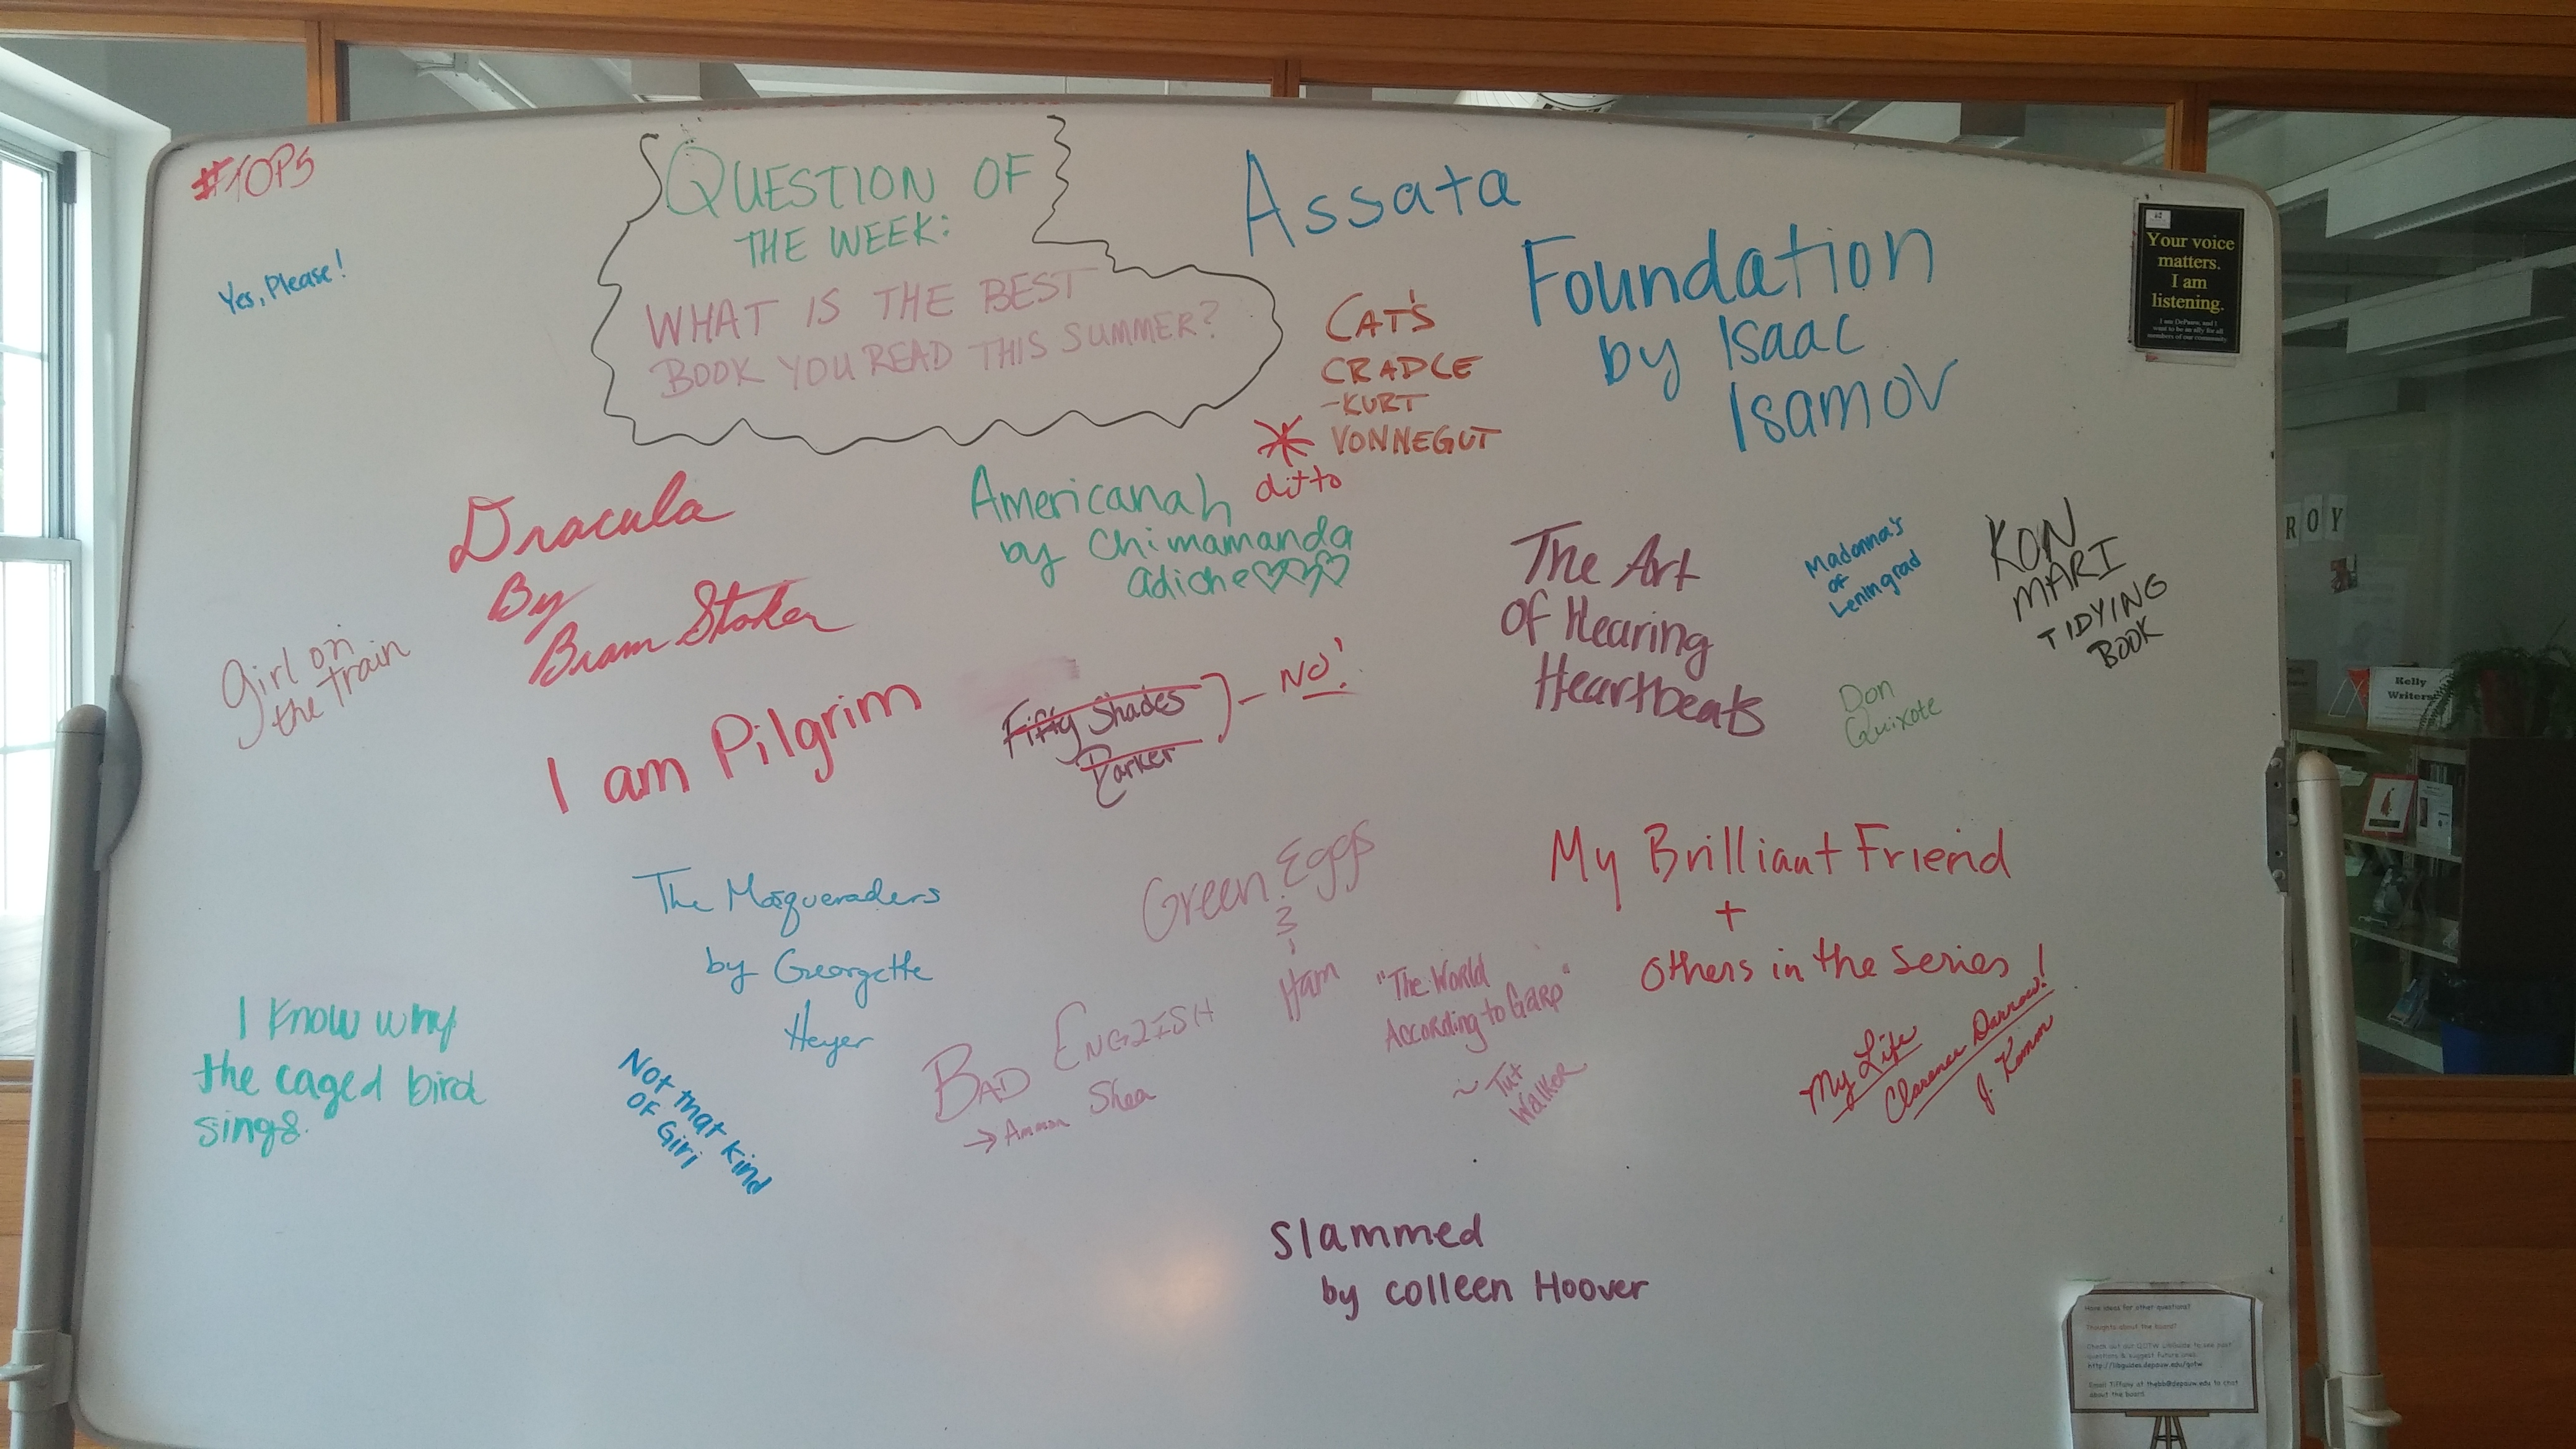 #TOPS
Yes, Please!
QUESTION OF
THE WEEK:
WHAT IS THE BEST
BOOK YOU READ THIS SUMMER?
Assata
Foundation
by Isaac
Isamov
Your voice
matters.
I am
listening.
I am DePauw, and I
want to be an ally for all
members of our community.
CAT'S
CRADLE
-KURT
VONNEGUT
* ditto
Dracula
By
Bram Stoker
Americanah
by Chimamanda
adiche♡♡♡
The Art
of Hearing
Heartbeats
Madonna's
of
Leningrad
KON
MARI
TIDYING
BOOK
ROY
Girl on
the train
I am Pilgrim
Fifty Shades
Darker
- NO!
Don
Quixote
Kelly
Writers
The Masqueraders
by Georgette
Heyer
Green Eggs
&
Ham
My Brilliant Friend
+
others in the series!
I know why
the caged bird
sings.
Not that kind
OF Girl
BAD ENGLISH
→ Ammon Shea
"The World
According to Garp"
~ Tut
Walker
My Life
Clarence Darrow!
J. Kamm
Slammed
by colleen Hoover
Have ideas for other questions?
Thoughts about the board?
Check out our QOTW LibGuide to see past
questions & suggest future ones:
http://libguides.depauw.edu/qotw
Email Tiffany at thebb@depauw.edu to chat
about the board.